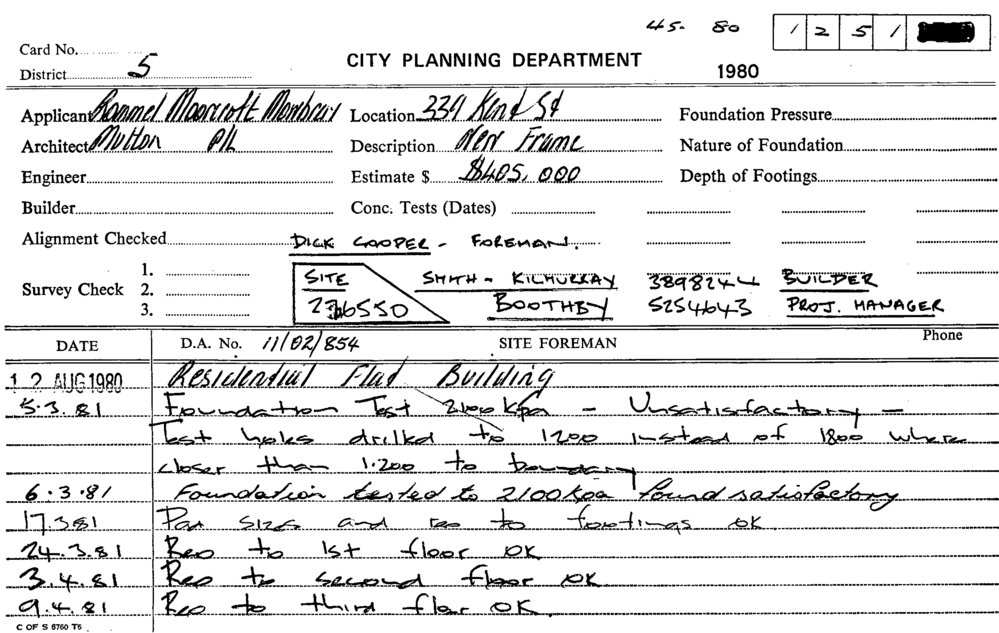 45. 80 1 2 5 1
Card No.
District 5
CITY PLANNING DEPARTMENT
1980
Applicant Rommel Moorcroft Mowbray Location 339 Kent St Foundation Pressure
Architect Mutton P/L Description New Frame Nature of Foundation
Engineer Estimate $ $405,000 Depth of Footings
Builder Conc. Tests (Dates)
Alignment Checked DICK COOPER - FOREMAN.
Survey Check 1. 2. 3.
SITE SMITH - KILMURRAY 3898244 BUILDER
276550 BOOTHBY 5254643 PROJ. MANAGER
DATE D.A. No. 11/02/854 SITE FOREMAN Phone
12 AUG 1980 Residential Flat Building
5.3.81 Foundation Test 2100 kpa - Unsatisfactory -
Test holes drilled to 1200 instead of 1800 where
closer than 1.200 to boundary
6.3.81 Foundation tested to 2100 kpa found satisfactory
17.3.81 Pad sizes and reo to footings ok
24.3.81 Reo to 1st floor OK
3.4.81 Reo to second floor OK
9.4.81 Reo to third floor OK.
C OF S 6760 T6